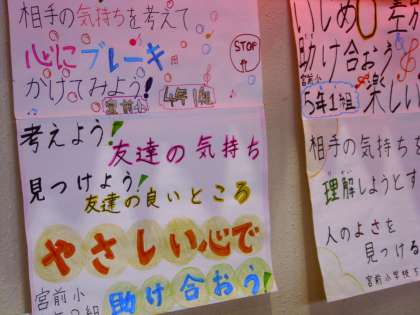 相手の気持ちを考えて
心にブレーキ
STOP
かけてみよう!
宮前小
4年1組
考えよう!
友達の気持ち
見つけよう!
友達の良いところ
やさしい心で
宮前小
助け合おう!
いじめ0
助け合おう
宮前小
5年1組
楽しい
相手の気持ちを
理解しようとす
人のよさを
見つける
宮前小学校5